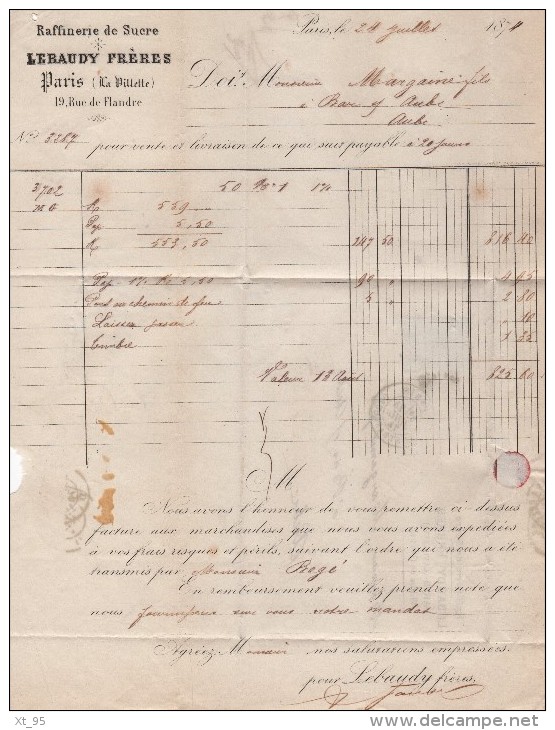 Raffinerie de Sucre
LEBAUDY FRÈRES
Paris (La Villette)
19, Rue de Flandre
Paris, le 24 Juillet 1874
Doit Monsieur Margaine fils
à Bar s/ Aube
Aube
No. 3287 pour vente et livraison de ce qui suit payable à 20 jours
3702 50
559
5,50
553,50 247 50 816 40
90 " 4 05
5 " 2 80
Timbre
Valeur 13 Août 825 60
M
Nous avons l'honneur de vous remettre ci dessus
facture aux marchandises que nous vous avons expédiées
à vos frais risques et périls, suivant l'ordre qui nous a été
transmis par Monsieur Rogé
En remboursement veuillez prendre note que
nous fournissons sur vous notre mandat
Agréez Monsieur nos salutations empressées.
pour Lebaudy frères,
Xt_95
delcampe.net